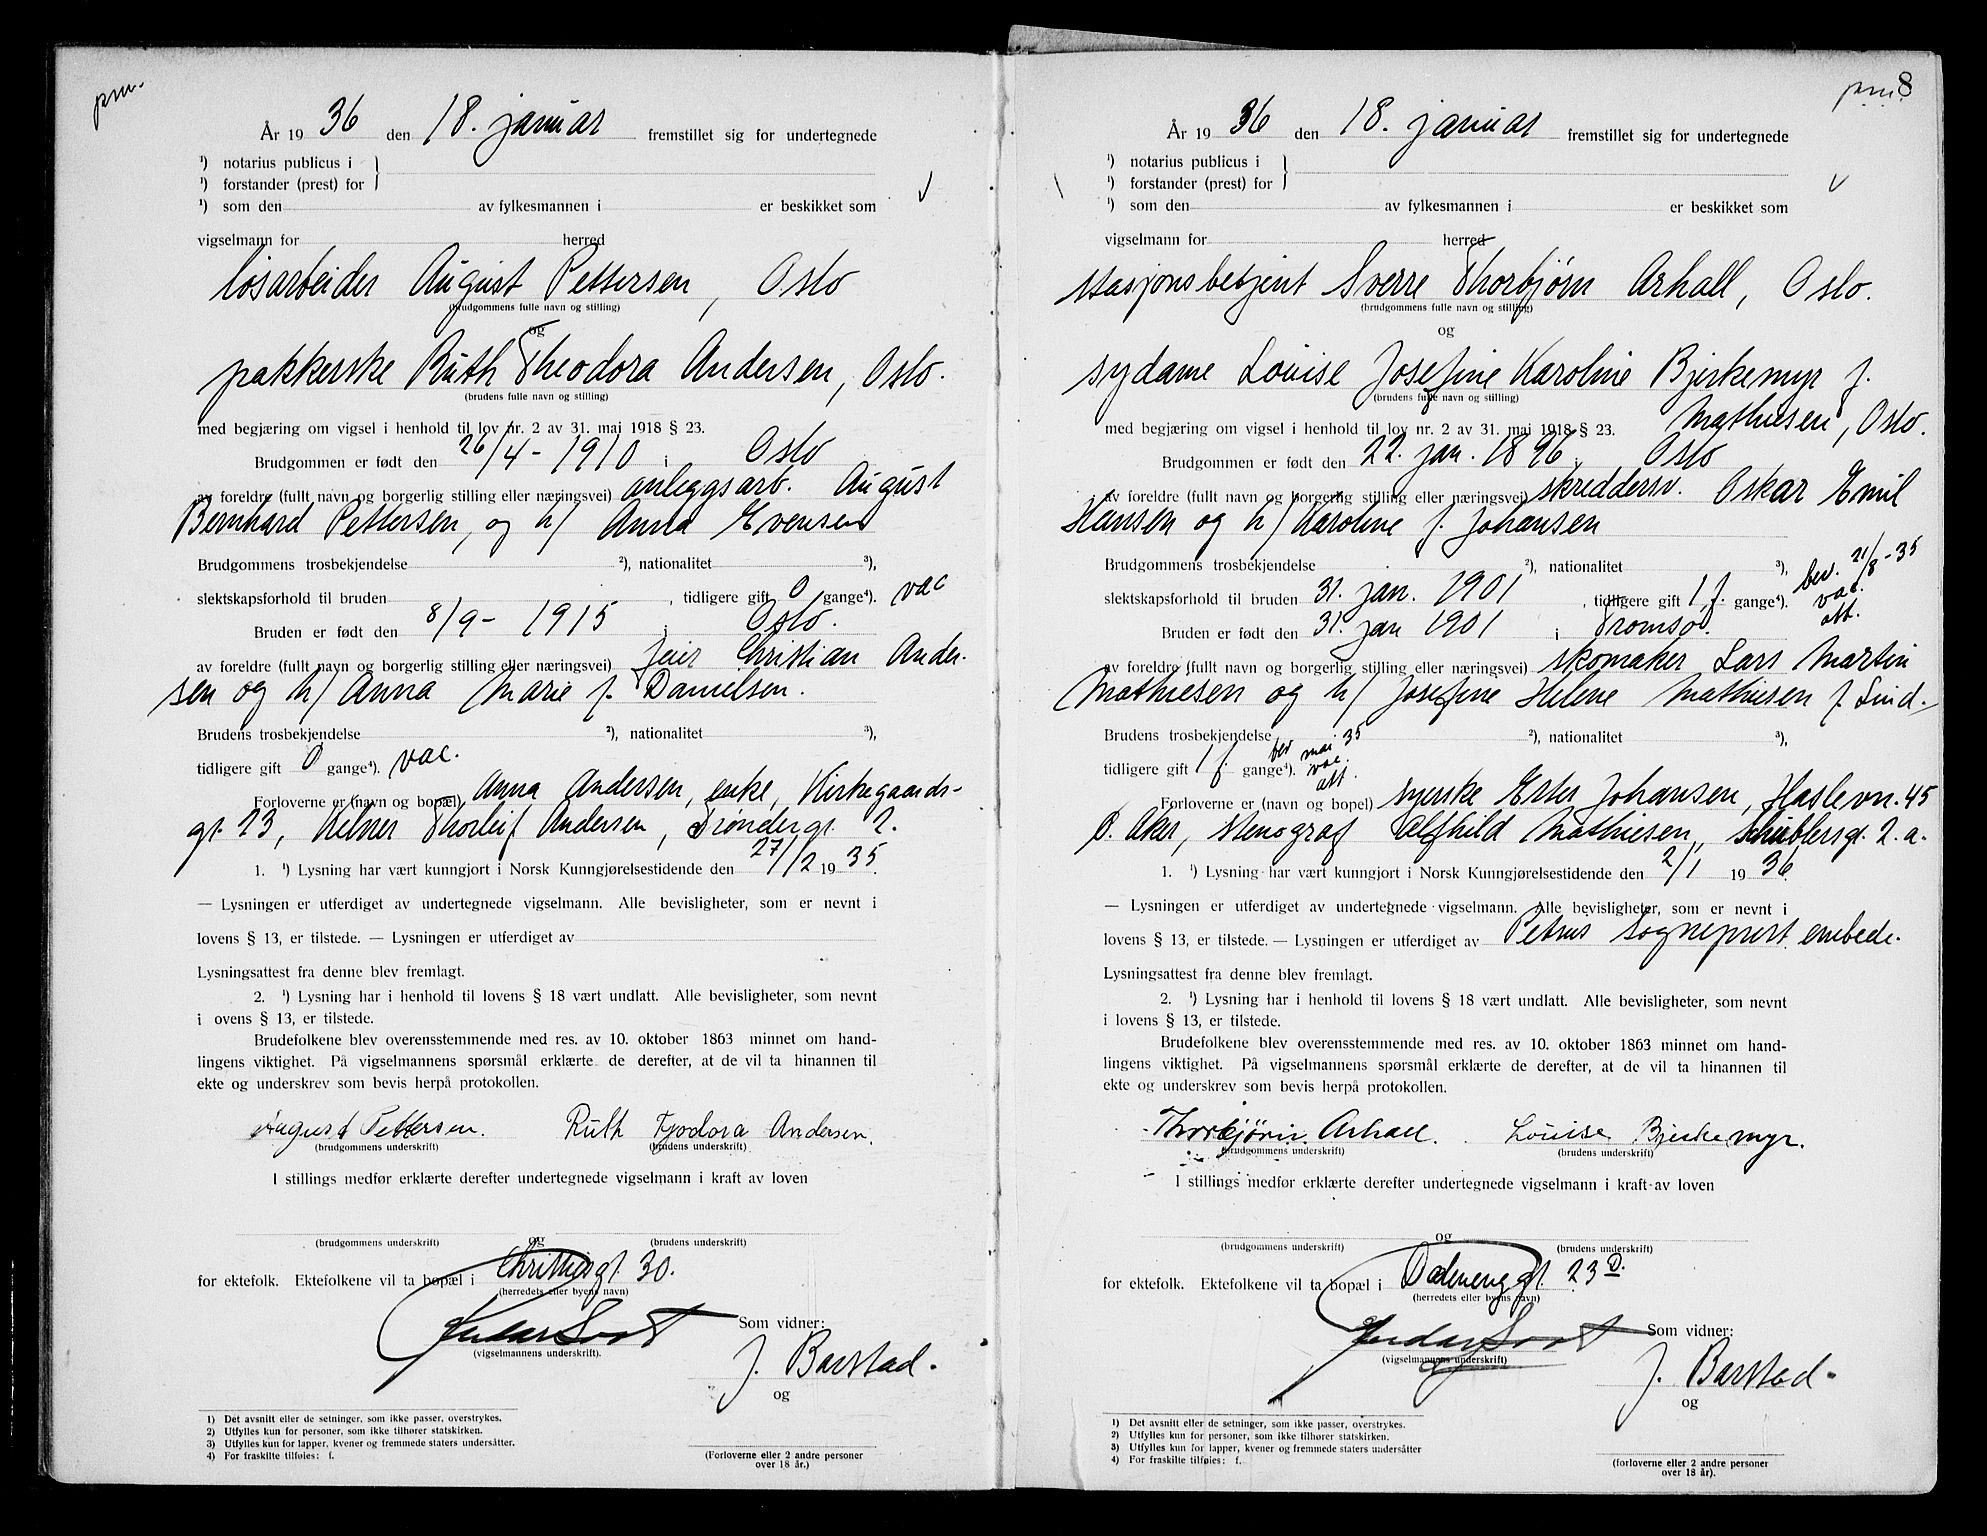 pm.
År 19 36 den 18. januar fremstillet sig for undertegnede
¹) notarius publicus i
¹) forstander (prest) for
¹) som den av fylkesmannen i er beskikket som
vigselmann for herred
løsarbeider August Pettersen, Oslo
(brudgommens fulle navn og stilling)
og
pakkerske Ruth Theodora Andersen, Oslo.
(brudens fulle navn og stilling)
med begjæring om vigsel i henhold til lov nr. 2 av 31. mai 1918 § 23.
Brudgommen er født den 26/4 - 1910 i Oslo
av foreldre (fullt navn og borgerlig stilling eller næringsvei) anleggsarb. August
Bernhard Pettersen, og h/ Anna Evensen
Brudgommens trosbekjendelse ²), nationalitet ³),
slektskapsforhold til bruden , tidligere gift 0 gange⁴). vac
Bruden er født den 8/9 - 1915 i Oslo.
av foreldre (fullt navn og borgerlig stilling eller næringsvei) feier Christian Ander-
sen og h/ Anna Marie f. Danielsen.
Brudens trosbekjendelse ²), nationalitet ³),
tidligere gift 0 gange⁴). vac.
Forloverne er (navn og bopæl) Anna Andersen, enke, Kirkegaards-
gt. 23, Thorleif Andersen, Trøndergt. 2.
1. ¹) Lysning har vært kunngjort i Norsk Kunngjørelsestidende den 27/12 19 35.
— Lysningen er utferdiget av undertegnede vigselmann. Alle bevisligheter, som er nevnt i
lovens § 13, er tilstede. — Lysningen er utferdiget av
Lysningsattest fra denne blev fremlagt.
2. ¹) Lysning har i henhold til lovens § 18 vært undlatt. Alle bevisligheter, som nevnt
i ovens § 13, er tilstede.
Brudefolkene blev overensstemmende med res. av 10. oktober 1863 minnet om hand-
lingens viktighet. På vigselmannens spørsmål erklærte de derefter, at de vil ta hinannen til
ekte og underskrev som bevis herpå protokollen.
August Pettersen. Ruth Tjodora Andersen.
(brudgommens underskrift) (brudens underskrift)
I stillings medfør erklærte derefter undertegnede vigselmann i kraft av loven
og
(brudgommens underskrift) (brudens underskrift)
for ektefolk. Ektefolkene vil ta bopæl i Christiesgt. 30.
(herredets eller byens navn)
Som vidner:
(vigselmannens underskrift).
J. Barstad.
og
1) Det avsnitt eller de setninger, som ikke passer, overstrykes.
2) Utfylles kun for personer, som ikke tilhører statskirken.
3) Utfylles kun for lapper, kvener og fremmede staters undersåtter.
4) For fraskilte tilføies: f.
(Forloverne eller 2 andre personer
over 18 år.)
pm. 8
År 19 36 den 18. januar fremstillet sig for undertegnede
¹) notarius publicus i
¹) forstander (prest) for
¹) som den av fylkesmannen i er beskikket som
vigselmann for herred
stasjonsbetjent Sverre Thorbjørn Arhall, Oslo.
(brudgommens fulle navn og stilling)
og
sydame Louise Josefine Karoline Bjerkemyr f.
(brudens fulle navn og stilling)
Mathiesen, Oslo.
med begjæring om vigsel i henhold til lov nr. 2 av 31. mai 1918 § 23.
Brudgommen er født den 22. jan. 1896 i Oslo
av foreldre (fullt navn og borgerlig stilling eller næringsvei) skreddersv. Oskar Emil
Hansen og h/ Karoline f. Johansen
Brudgommens trosbekjendelse ²), nationalitet ³), bev. 21/8 - 35
slektskapsforhold til bruden 31. jan. 1901 , tidligere gift 1 f. gange⁴). vac.
att.
Bruden er født den 31. jan 1901 i Tromsø.
av foreldre (fullt navn og borgerlig stilling eller næringsvei) skomaker Lars Martin
Mathiesen og h/ Josefine Helene Mathiesen f. Lind-
Brudens trosbekjendelse ²), nationalitet ³),
tidligere gift 1 f. gange⁴). bev mai 35
vac.
att.
Forloverne er (navn og bopel) syerske Ester Johansen, Haslevn. 45
Ø. Aker, stenograf Alfhild Mathiesen, Schüblersgt. 2.a.
1. ¹) Lysning har vært kunngjort i Norsk Kunngjørelsestidende den 2/1 19 36.
— Lysningen er utferdiget av undertegnede vigselmann. Alle bevisligheter, som er nevnt i
lovens § 13, er tilstede. — Lysningen er utferdiget av Petrus sogneprest embede.
Lysningsattest fra denne blev fremlagt.
2. ¹) Lysning har i henhold til lovens § 18 vært undlatt. Alle bevisligheter, som nevnt
i lovens § 13, er tilstede.
Brudefolkene blev overensstemmende med res. av 10. oktober 1863 minnet om hand-
lingens viktighet. På vigselmannens spørsmål erklærte de derefter, at de vil ta hinannen til
ekte og underskrev som bevis herpå protokollen.
Thorbjörn Arhall. Louise Bjerkemyr.
(brudgommens underskrift) (brudens underskrift)
I stillings medfør erklærte derefter undertegnede vigselmann i kraft av loven
og
(brudgommens underskrift) (brudens underskrift)
for ektefolk. Ektefolkene vil ta bopæl i Dælenenggt. 23 D.
(herredets eller byens navn)
Som vidner:
(vigselmannens underskrift)
J. Barstad.
og
1) Det avsnitt eller de setninger, som ikke passer, overstrykes.
2) Utfylles kun for personer, som ikke tilhører statskirken.
3) Utfylles kun for lapper, kvener og fremmede staters undersåtter
4) For fraskilte tilføies: f.
(forloverne eller 2 andre personer
over 18 år).